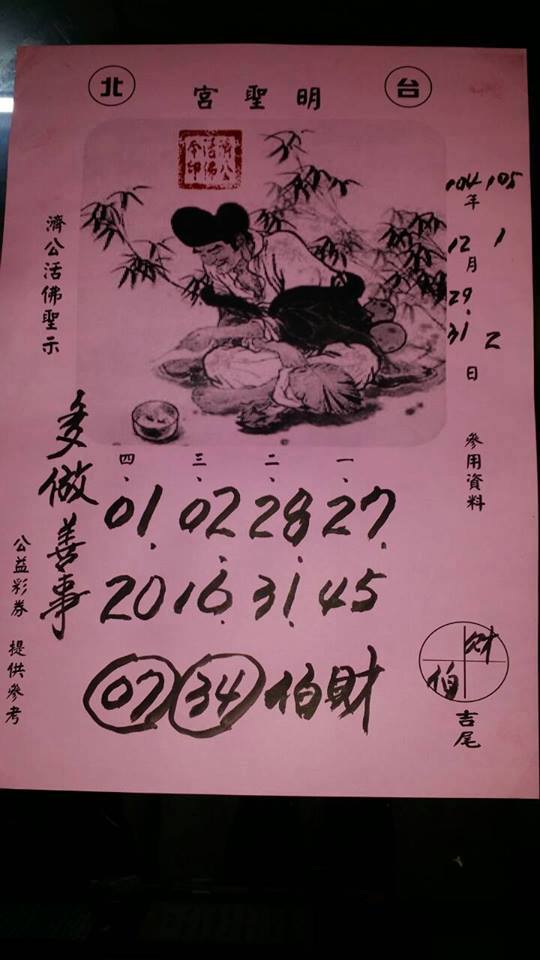 台北
明聖宮
濟公活佛聖示
104年12月29.31日
105 1 2
參用資料
一、二、三、四、
27. 28. 02. 01.
45 31. 16. 20
07 34 伯財
多做善事
公益彩券 提供參考
財
伯
吉尾